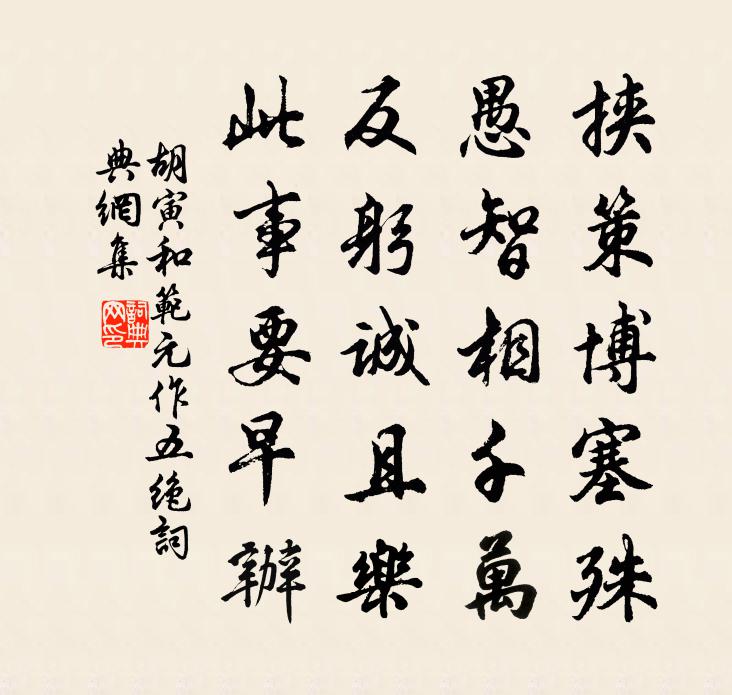 挾策博塞殊
愚智相千萬
反躬誠且樂
此事要早辦
胡寅和範元作五絶詞
典網集
詞典
网印